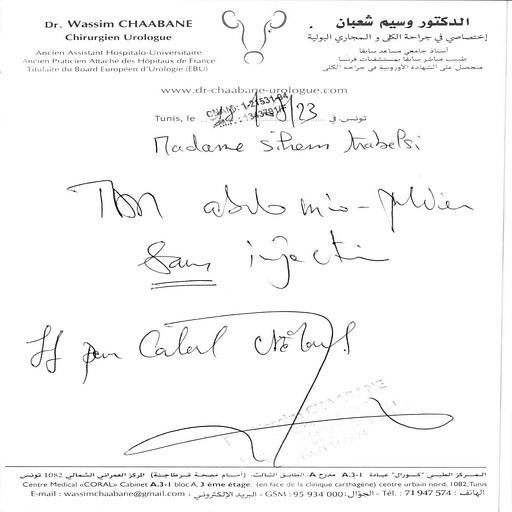 Dr. Wassim CHAABANE
Chirurgien Urologue
Ancien Assistant Hospitalo-Universitaire
Ancien Praticien Attaché des Hôpitaux de France
Titulaire du Board Européen d'Urologie (EBU)
الدكتور وسيم شعبان
إختصاصي في جراحة الكلى و المجاري البولية
أستاذ جامعي مساعد سابقا
طبيب مباشر سابقا بمستشفيات فرنسا
متحصل على الشهادة الأوروبية في جراحة الكلى
www.dr-chaabane-urologue.com
Tunis, le /23 تونس, في
Madame Sihem trabelsi
TDM abdomino-pelvien
Sans injection
pour
المركز الطبي "كورال" عيادة A.3-1 مدرج A، الطابق الثالث، (أمام مصحة قرطاجنة) المركز العمراني الشمالي 1082 تونس
Centre Medical «CORAL» Cabinet A.3-1 bloc A, 3 ème étage. (en face de la clinique carthagène) centre urbain nord, 1082,Tunis
E-mail : wassimchaabane@gmail.com : البريد الإلكتروني - GSM : 95 934 000 :الجوّال - Tél. : 71 947 574 : الهاتف